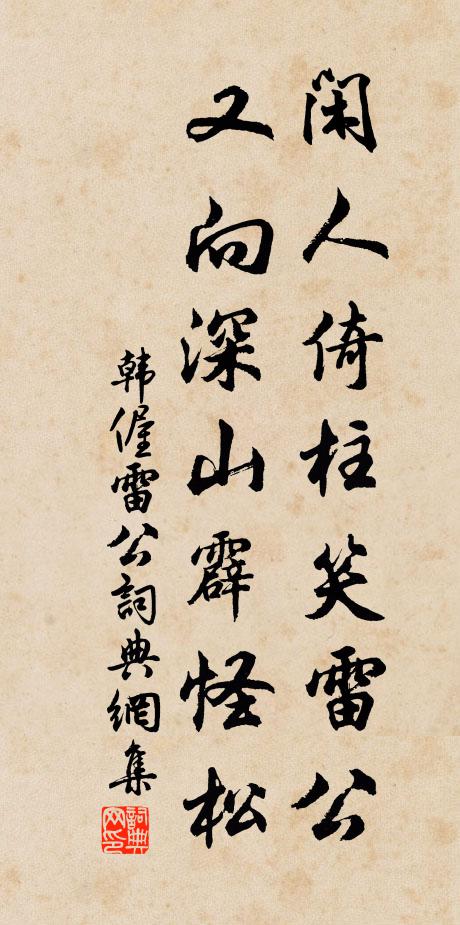 闲人倚柱笑雷公
又向深山霹怪松
韩偓雷公词典網集
詞典網印